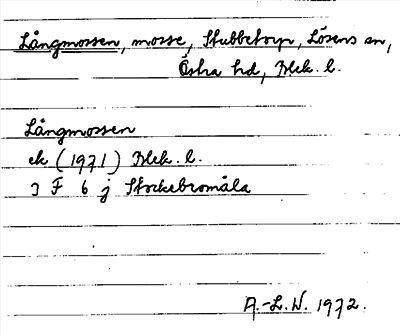 Långmossen, mosse, Stubbetorp, Lösens sn,
Östra hd, Blek. l.
Långmossen
ek (1971) Blek. l.
3 F 6 j Stockebromåla
A.-L. W. 1972.